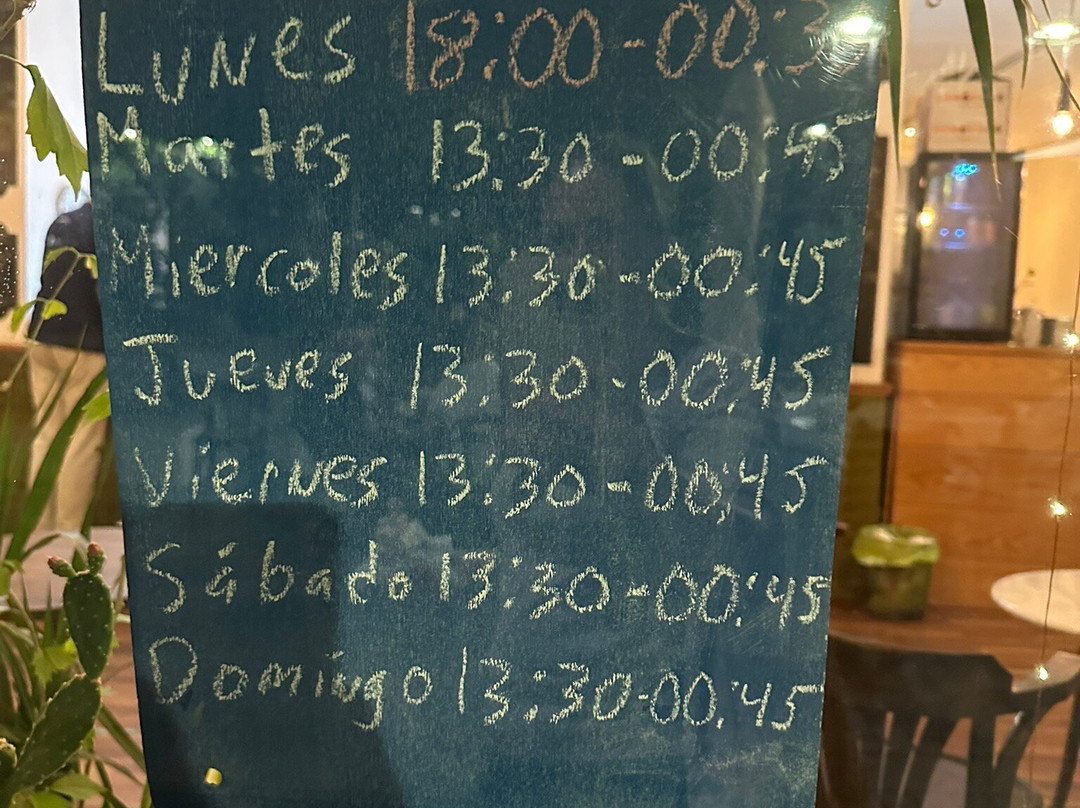 Lunes 18:00-00:3
Martes 13:30-00:45
Miercoles 13:30-00:45
Jueves 13:30-00:45
Viernes 13:30-00:45
Sábado 13:30-00:45
Domingo 13:30-00:45